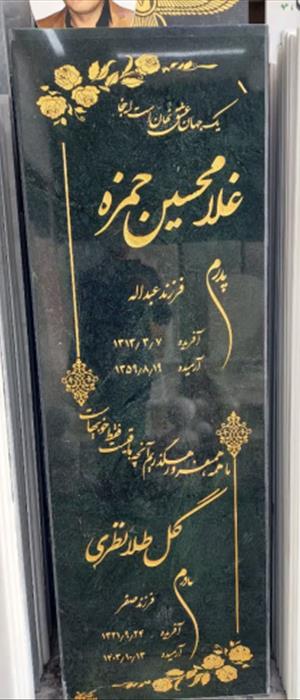 یک جهان عشق نهان است اینجا
غلامحسین حمزه
پدرم
فرزند عبداله
آفریده ۱۳۱۳/۳/۷
آرمیده ۱۳۵۹/۸/۱۹
ما همه رهگذریم آنچه باقیست فقط خوبیهاست
گل طلا نظری
مادرم
فرزند صفر
آفریده ۱۳۲۱/۹/۲۴
آرمیده ۱۴۰۳/۱۰/۱۳